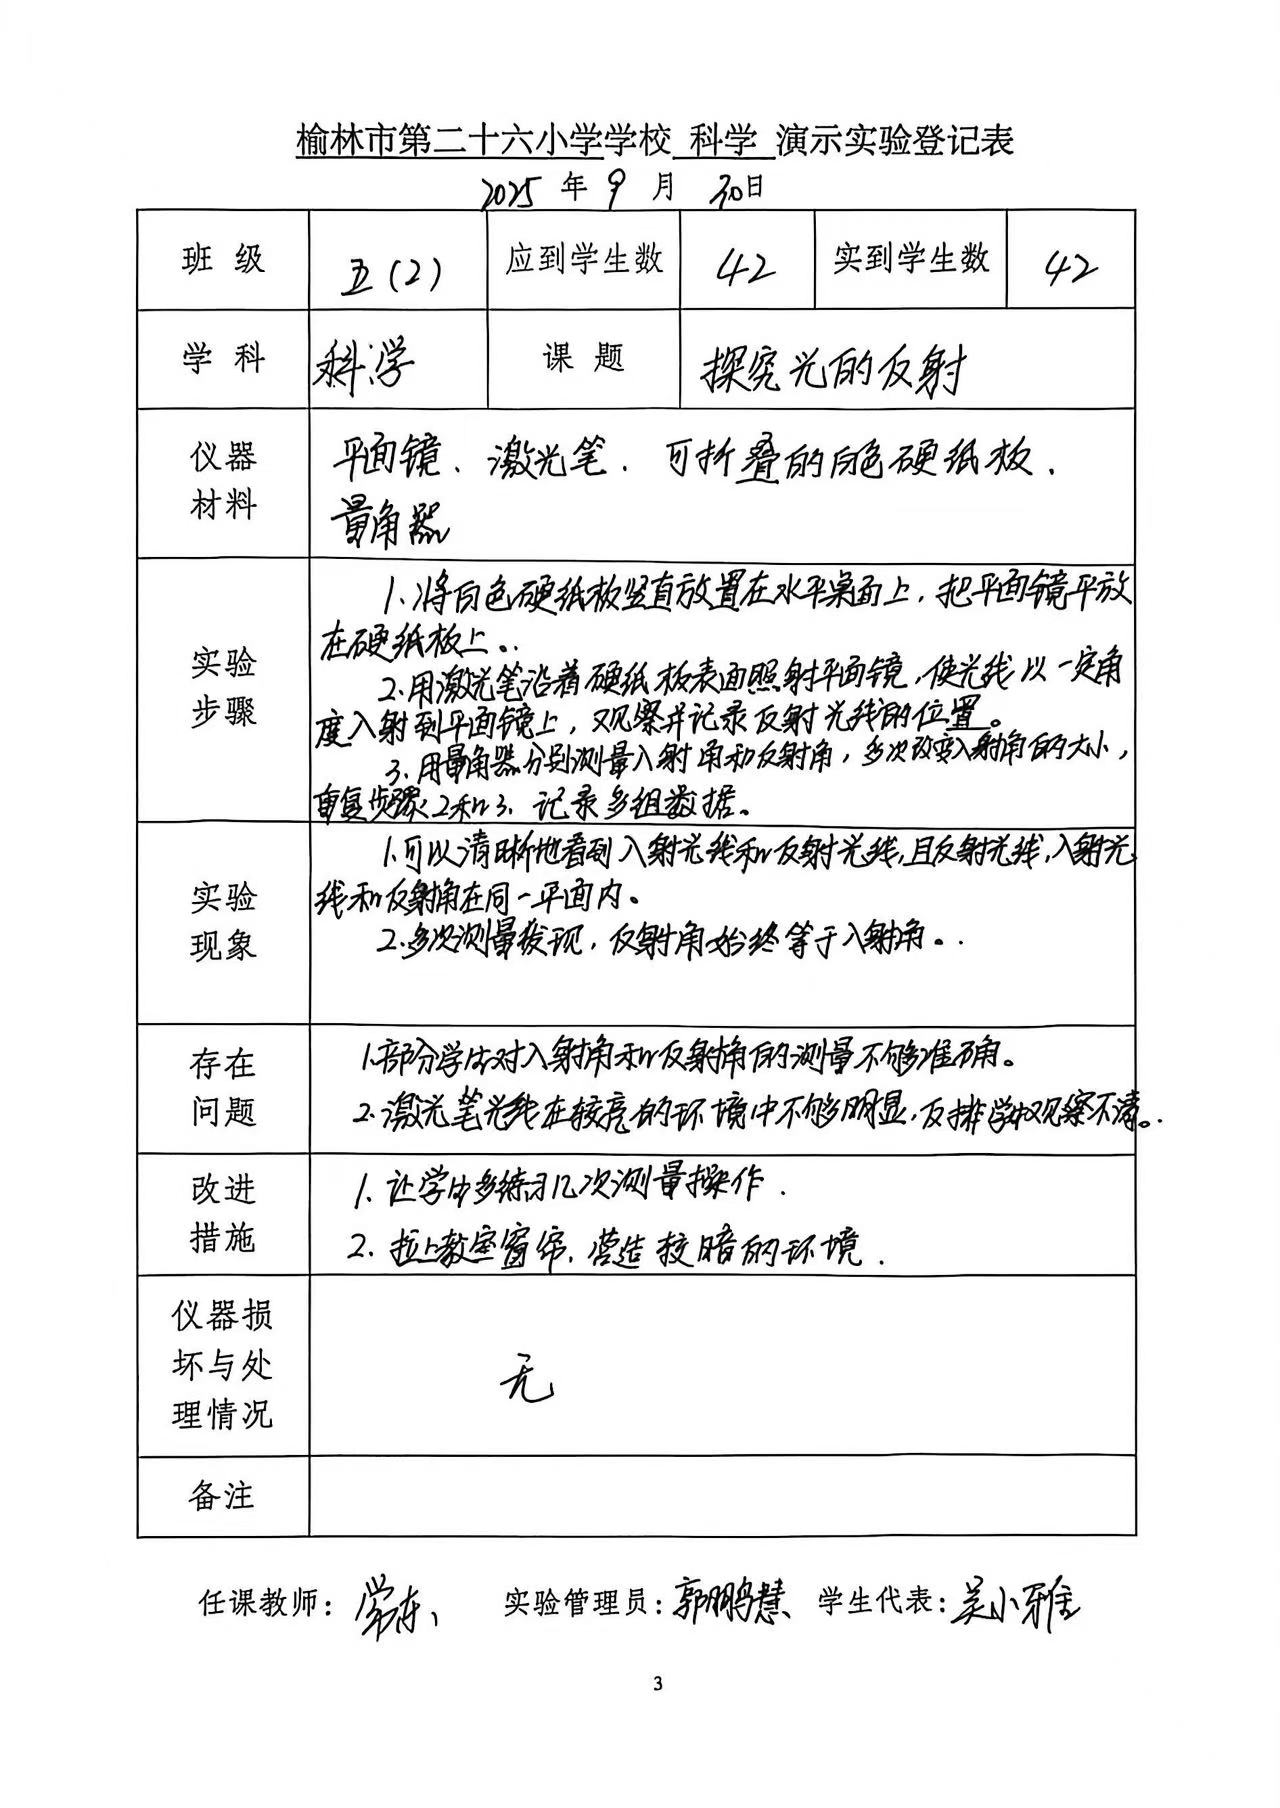 榆林市第二十六小学学校 科学 演示实验登记表
2025 年 9 月 30日
班 级 五(2) 应到学生数 42 实到学生数 42
学 科 科学 课 题 探究光的反射
仪器 平面镜、激光笔、可折叠的白色硬纸板、
材料 量角器
1、将白色硬纸板竖直放置在水平桌面上,把平面镜平放
在硬纸板上。
实验
步骤
2.用激光笔沿着硬纸板表面照射平面镜,使光线以一定角
度入射到平面镜上,观察并记录反射光线的位置。
3、用量角器分别测量入射角和反射角,多次改变入射角的大小,
重复步骤2和3、记录多组数据。
1.可以清晰地看到入射光线和反射光线,且反射光线,入射光
线和反射角在同一平面内。
实验
现象
2.多次测量发现,反射角始终等于入射角。
存在
问题
1.部分学生对入射角和反射角的测量不够准确。
2.激光笔光线在较亮的环境中不够明显,反排学权观察不清。
改进
措施
1.让学生多练习几次测量操作.
2.拉上教室窗帘、营造较暗的环境.
仪器损
坏与处
理情况
无
备注
任课教师: 常东 实验管理员:郭鹏慧 学生代表:吴小雅
3